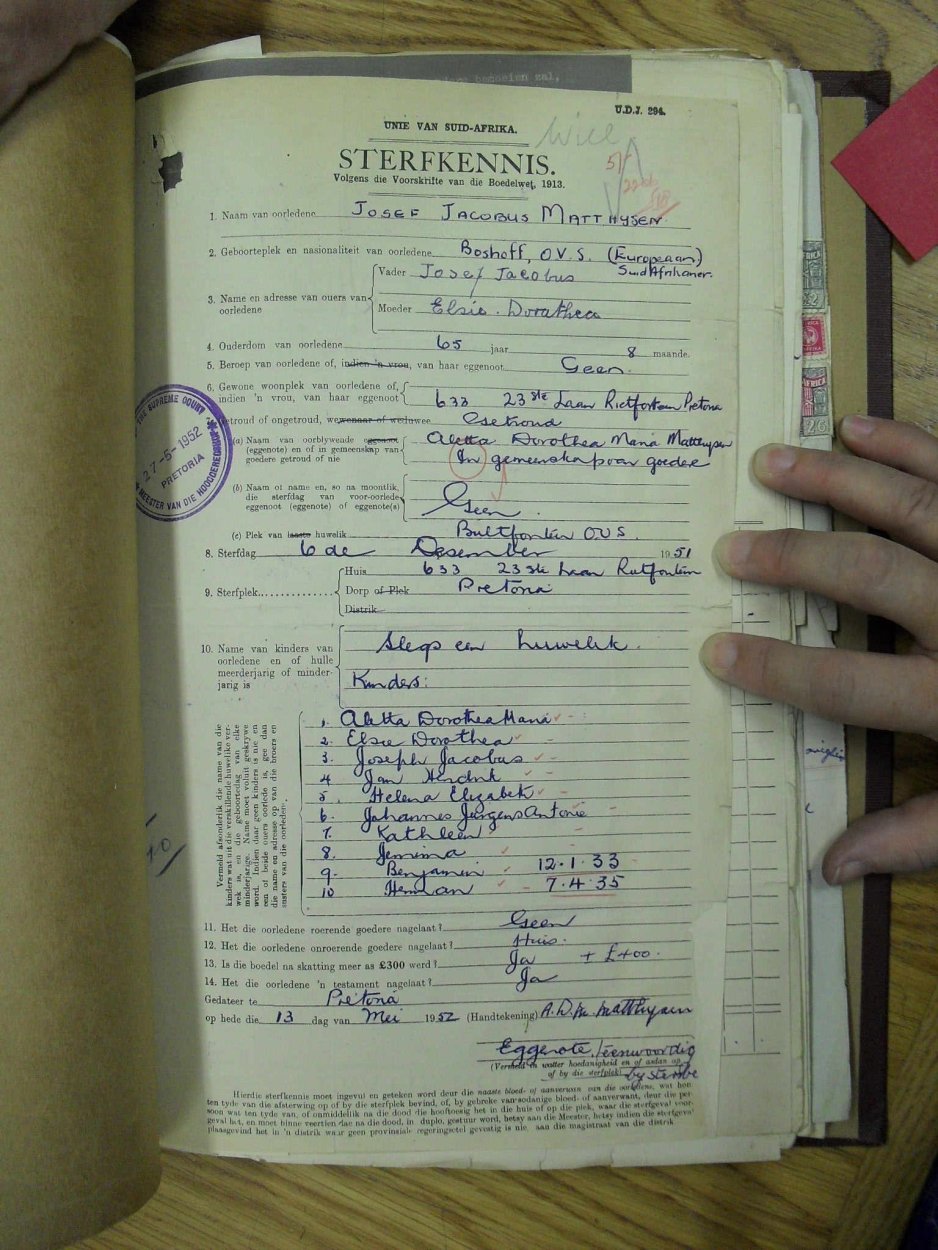 U.D.J. 294.
UNIE VAN SUID-AFRIKA.
Will
STERFKENNIS.
Volgens die Voorskrifte van die Boedelwet, 1913.
1. Naam van oorledene JOSEF JACOBUS MATTHYSEN
2. Geboorteplek en nasionaliteit van oorledene Boshoff, O.V.S. (Europeaan)
SuidAfrikaner.
3. Name en adresse van ouers van oorledene
Vader Josef Jacobus
Moeder Elsie Dorathea
4. Ouderdom van oorledene 65 jaar 8 maande.
5. Beroep van oorledene of, indien 'n vrou, van haar eggenoot Geen.
6. Gewone woonplek van oorledene of,
indien 'n vrou, van haar eggenoot 633 23ste Laan Rietfontein Pretoria
Getroud of ongetroud, wewenaar of weduwee Getroud
(a) Naam van oorblywende eggenoot Aletta Dorothea Maria Matthysen
(eggenote) en of in gemeenskap van
goedere getroud of nie In gemeenskap van goedere
(b) Naam of name en, so na moontlik,
die sterfdag van voor-oorlede
eggenoot (eggenote) of eggenote(s) Geen.
(c) Plek van laaste huwelik Bultfontein O.V.S.
8. Sterfdag 6de Desember 1951
9. Sterfplek
Huis 633 23ste Laan Rietfontein
Dorp of Plek Pretoria
Distrik
THE SUPREME COURT
27-5-1952
PRETORIA
MEESTER VAN DIE HOOGGEREGSHOF
10. Name van kinders van
oorledene en of hulle
meerderjarig of minder-
jarig is
Slegs een huwelik.
Kinders:
Vermeld afsonderlik die name van die
kinders wat uit die verskillende huwelike ver-
wek is, en die geboortedag van elke
minderjarige. Name moet voluit geskrywe
word. Indien daar geen kinders is nie en
een of beide ouers oorlede is, gee dan
die name en adresse op van die broers en
susters van die oorledene.
1. Aletta Dorothea Maria
2. Elsie Dorathea
3. Joseph Jacobus
4 Jan Hendrik
5. Helena Elizabeth
6. Johannes Jurgens Antonie
7. Kathleen
8. Jemima
9. Benjamin 12.1.33
10 Herman 7.4.35
11. Het die oorledene roerende goedere nagelaat? Geen
12. Het die oorledene onroerende goedere nagelaat? Huis.
13. Is die boedel na skatting meer as £300 werd? Ja ± £400.
14. Het die oorledene 'n testament nagelaat? Ja
Gedateer te Pretoria
op hede die 13 dag van Mei 1952 (Handtekening) A.D.M. Matthysen
Eggenote, teenwoordig
(Vermeld in watter hoedanigheid en of aldan op
of by die sterfplek) by sterwe
Hierdie sterfkennis moet ingevul en geteken word deur die naaste bloed- of aanverwant van die oorledene, wat
ten tyde van die afsterwing op of by die sterfplek bevind, of, by gebreke van sodanige bloed- of aanverwant, deur die
soon wat ten tyde van, of onmiddellik na die dood die hooftoesig het in die huis of op die plek, waar die sterfgeval
geval het, en moet binne veertien dae na die dood, in duplo, gestuur word, hetsy aan die Meester, hetsy indien die sterfgeval
plaasgevind het in 'n distrik waar geen provinsiale registrateur gevestig is nie, aan die magistraat van die distrik